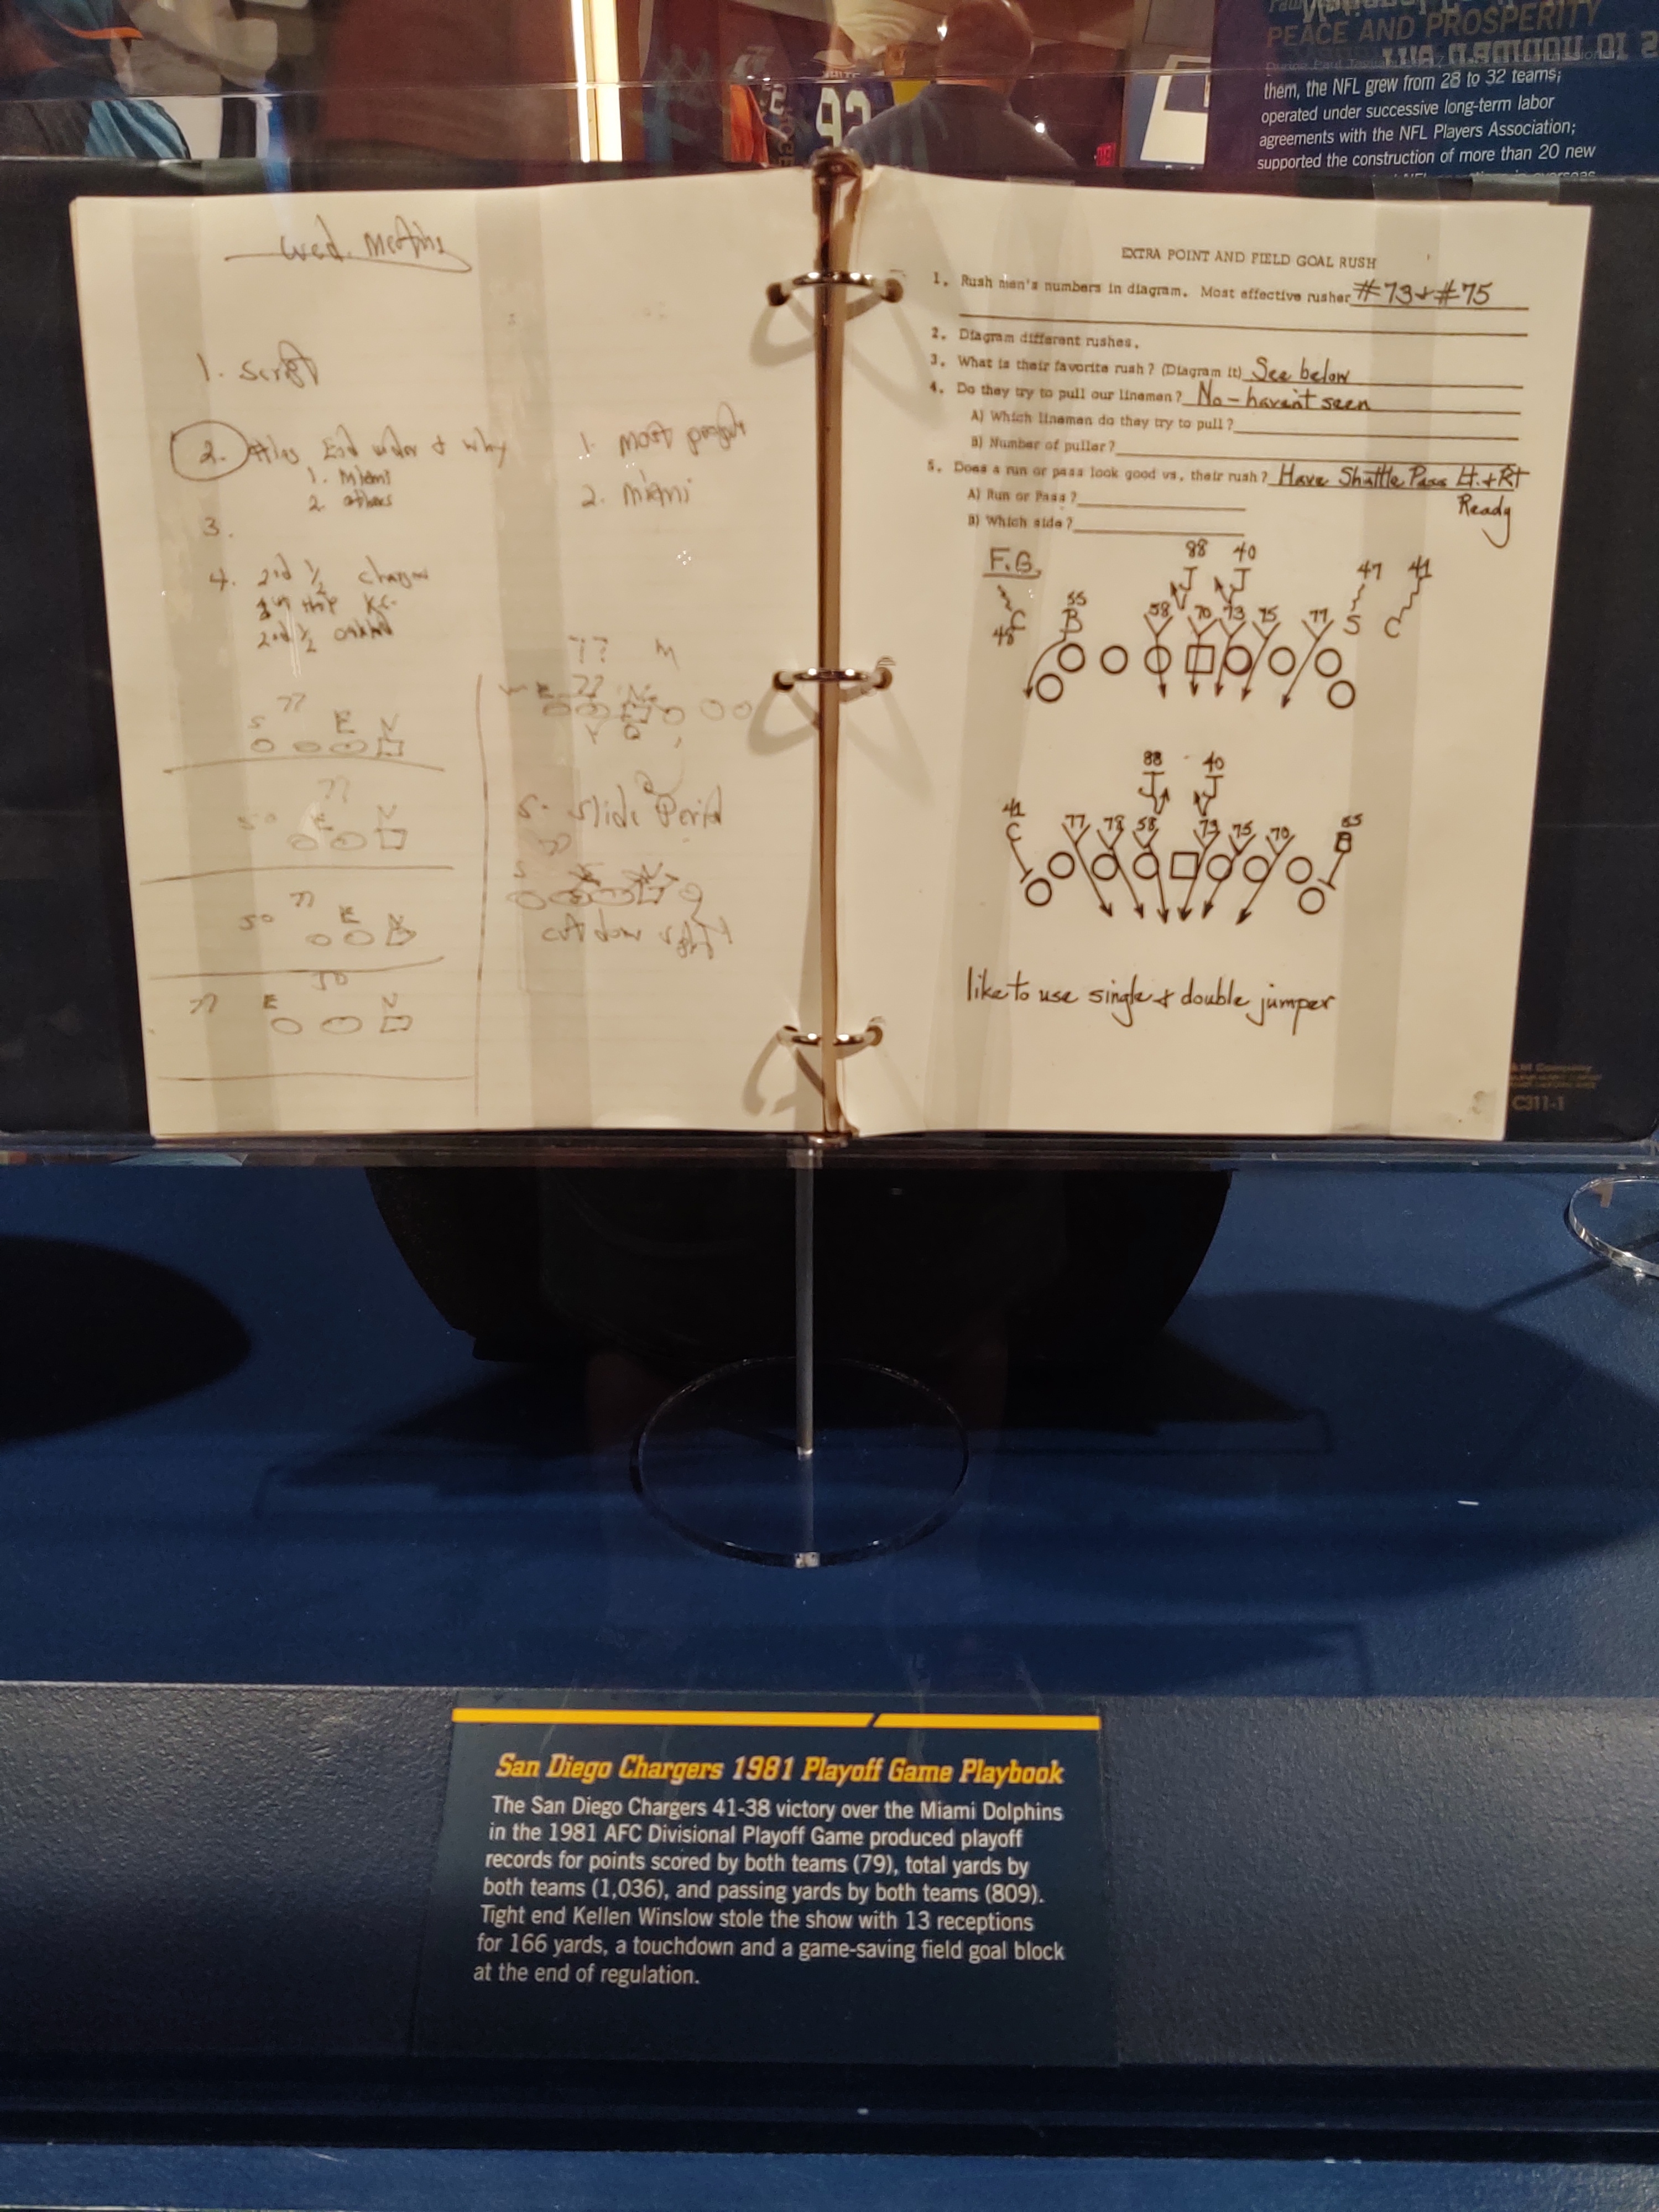 PEACE AND PROSPERITY
them, the NFL grew from 28 to 32 teams;
operated under successive long-term labor
agreements with the NFL Players Association;
supported the construction of more than 20 new
Wed.
1. Script
2. End under & why
1. Miami
2. others
3.
4. 2nd 1/2
K.C.
2nd 1/2
1. Most
2. Miami
77
S E N
77
E N
77
50 E N
50
77 E N
77 M
77
S. Slide Period
cut down right
EXTRA POINT AND FIELD GOAL RUSH
1. Rush men's numbers in diagram. Most effective rusher #73 & #75
2. Diagram different rushes.
3. What is their favorite rush? (Diagram it) See below
4. Do they try to pull our linemen? No - haven't seen
A) Which linemen do they try to pull?
B) Number of puller?
5. Does a run or pass look good vs. their rush? Have Shuttle Pass Lt. & Rt
Ready
A) Run or Pass?
B) Which side?
F.G.
88 40
J J
47 41
55 58 70 73 75 77
C B S C
48
88 40
J J
41 77 78 58 73 75 70 55
C B
like to use single & double jumper
C311-1
San Diego Chargers 1981 Playoff Game Playbook
The San Diego Chargers 41-38 victory over the Miami Dolphins
in the 1981 AFC Divisional Playoff Game produced playoff
records for points scored by both teams (79), total yards by
both teams (1,036), and passing yards by both teams (809).
Tight end Kellen Winslow stole the show with 13 receptions
for 166 yards, a touchdown and a game-saving field goal block
at the end of regulation.